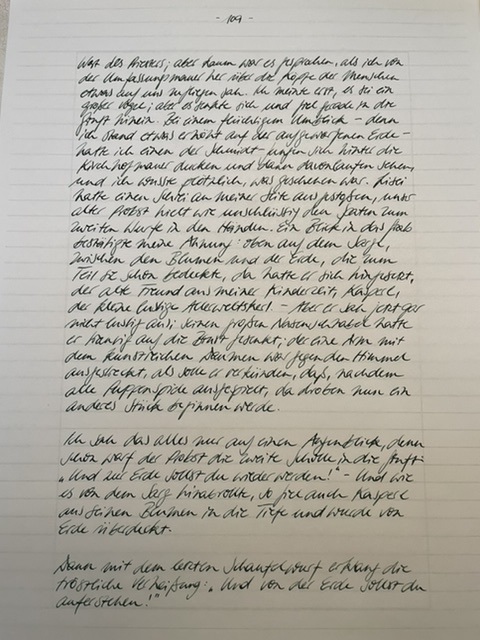 - 109 -
Wort des Priesters; aber kaum war es gesprochen, als ich von
der Umfassungsmauer her über die Köpfe der Menschen
etwas auf uns zufliegen sah. Ich meinte erst, es sei ein
großer Vogel; aber es senkte sich und fiel gerade in die
Gruft hinein. Bei einem flüchtigen Umblick – denn
ich stand etwas erhöht auf der aufgeworfenen Erde –
hatte ich einen der Schmidt-Jungen sich hinter die
Kirchhofmauer ducken und dann davonlaufen sehen,
und ich wusste plötzlich, was geschehen war. Lisei
hatte einen Schrei an meiner Seite ausgestoßen, unser
alter Probst hielt wie unschlüssig den Spaten zum
zweiten Wurfe in den Händen. Ein Blick in das Grab
bestätigte meine Ahnung: oben auf dem Sarge,
zwischen den Blumen und der Erde, die zum
Teil sie schon bedeckte, da hatte er sich hingesetzt,
der alte Freund aus meiner Kinderzeit, Kasperl,
der kleine lustige Allerweltskerl. – Aber er sah jetzt gar
nicht lustig aus; seinen großen Nasenschnabel hatte
er traurig auf die Brust gesenkt; der eine Arm mit
dem kunstreichen Daumen war gegen den Himmel
ausgestreckt, als solle er verkünden, daß, nachdem
alle Puppenspiele ausgespielt, da droben nun ein
anderes Stück beginnen werde.
Ich sah das alles nur auf einen Augenblick, denn
schon warf der Probst die zweite Scholle in die Gruft:
„Und zur Erde sollst du wieder werden!“ – Und wie
es von dem Sarg hinabrollte, so fiel auch Kasperl
aus seinen Blumen in die Tiefe und wurde von
Erde überdeckt.
Dann mit dem letzten Schaufelwurf erklang die
tröstliche Verheißung: „Und von der Erde sollst du
auferstehen!“